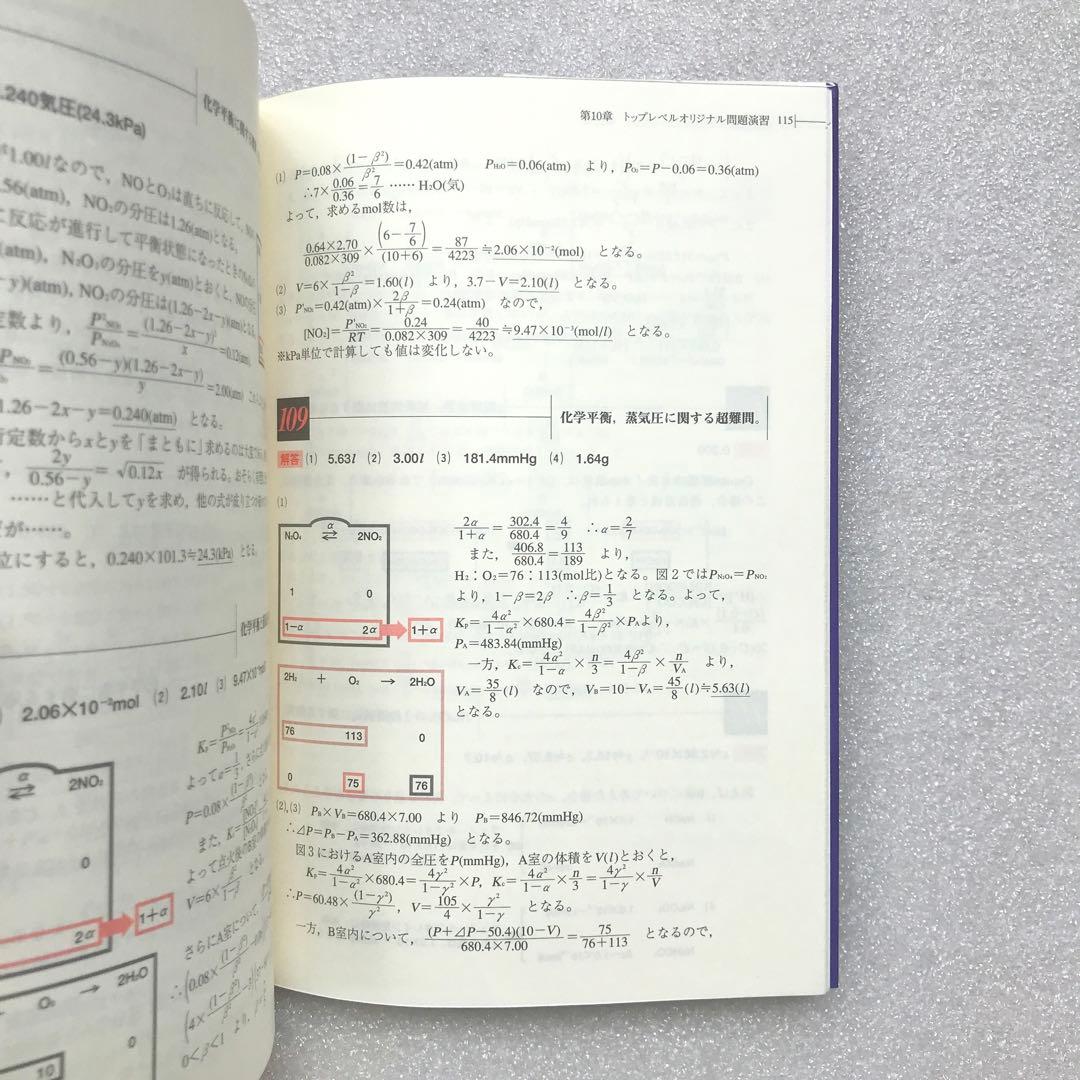 .240気圧(24.3kPa)
化学平衡に関する
1.00lなので，NOとO₂は直ちに反応して，
.56(atm)，NO₂の分圧は1.26(atm)となる。
に反応が進行して平衡状態になったときの
(atm)，N₂O₃の分圧をy(atm)とおくと，
−y)(atm)，NO₂の分圧は(1.26−2x−y)(atm)となる。
定数より，P²NO₂/PN₂O₄＝(1.26−2x−y)²/x＝0.12(atm)
＝(0.56−y)(1.26−2x−y)/y＝2.00(atm)
1.26−2x−y＝0.240(atm) となる。
衡定数からxとyを「まともに」求めるのは
2y/0.56−y＝√0.12x が得られる。
……と代入してyを求め，他の式が成り立つ
だが……。
立にすると，0.240×101.3≒24.3(kPa) となる。
2.06×10⁻²mol (2) 2.10l (3) 9.47×10⁻³mol
α
⇄ 2NO₂
0
2α
1＋α
O₂ → 2H₂O
0
10
よってα＝1/3，さらに
P＝0.08×(1−β²)/β²
また，
よって点火後のB室の
V＝6×β²/1−β
さらにA室について，
0＜β＜1 より，
第10章 トップレベルオリジナル問題演習 115
(1) P＝0.08×(1−β²)/β²＝0.42(atm) PH₂O＝0.06(atm) より，PO₂＝P−0.06＝0.36(atm)
∴7×0.06/0.36＝7/6 …… H₂O(気)
よって，求めるmol数は，
0.64×2.70/0.082×309×(6−7/6)/(10＋6)＝87/4223≒2.06×10⁻²(mol) となる。
(2) V＝6×β²/1−β＝1.60(l) より，3.7−V＝2.10(l) となる。
(3) P'NO₂＝0.42(atm)×2β/1＋β＝0.24(atm) なので，
[NO₂]＝P'NO₂/RT＝0.24/0.082×309＝40/4223≒9.47×10⁻³(mol/l) となる。
※kPa単位で計算しても値は変化しない。
109 化学平衡，蒸気圧に関する超難問。
解答 (1) 5.63l (2) 3.00l (3) 181.4mmHg (4) 1.64g
(1)
α
N₂O₄ ⇄ 2NO₂
1 0
1−α 2α 1＋α
2H₂ ＋ O₂ → 2H₂O
76 113 0
0 75 76
2α/1＋α＝302.4/680.4＝4/9 ∴α＝2/7
また，406.8/680.4＝113/189 より，
H₂：O₂＝76：113(mol比)となる。図2ではPN₂O₄＝PNO₂
より，1−β＝2β ∴β＝1/3 となる。よって，
Kp＝4α²/1−α²×680.4＝4β²/1−β²×PAより，
PA＝483.84(mmHg)
一方，Kc＝4α²/1−α×n/3＝4β²/1−β×n/VA より，
VA＝35/8(l) なので，VB＝10−VA＝45/8(l)≒5.63(l)
となる。
(2)，(3) PB×VB＝680.4×7.00 より PB＝846.72(mmHg)
∴⊿P＝PB−PA＝362.88(mmHg) となる。
図3におけるA室内の全圧をP(mmHg)，A室の体積をV(l)とおくと，
Kp＝4α²/1−α²×680.4＝4γ²/1−γ²×P，Kc＝4α²/1−α×n/3＝4γ²/1−γ×n/V
∴P＝60.48×(1−γ²)/γ²，V＝105/4×γ²/1−γ となる。
一方，B室内について，(P＋⊿P−50.4)(10−V)/680.4×7.00＝75/76＋113 となるので，